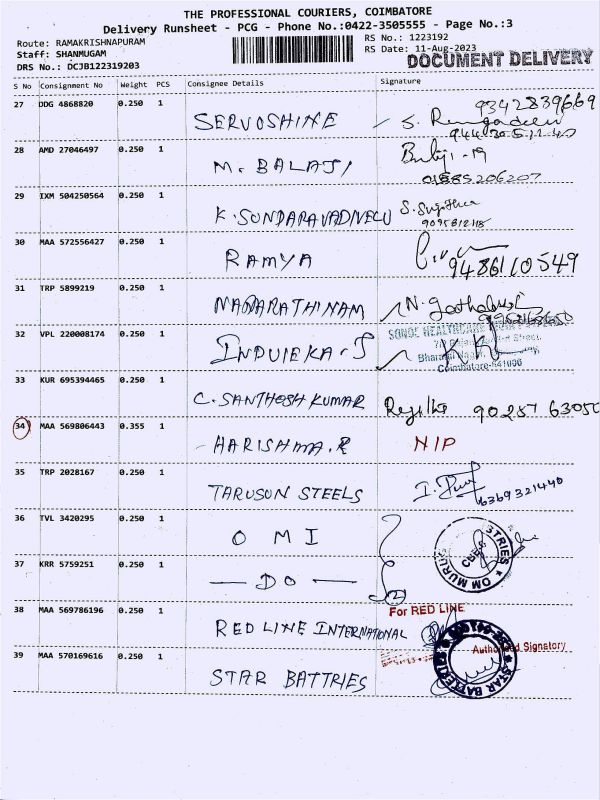 THE PROFESSIONAL COURIERS, COIMBATORE
Delivery Runsheet - PCG - Phone No.:0422-3505555 - Page No.:3
Route: RAMAKRISHNAPURAM
RS No.: 1223192
Staff: SHANMUGAM
RS Date: 11-Aug-2023
DOCUMENT DELIVERY
DRS No.: DCJB122319203
S No Consignment No Weight PCS Consignee Details Signature
27 DDG 4868820 0.250 1 SERVOSHINE 9342839669
28 AMD 27046497 0.250 1 M. BALAJI
29 IXM 504250564 0.250 1 K. SUNDARAVADIVELU
30 MAA 572556427 0.250 1 RAMYA 9486110549
31 TRP 5899219 0.250 1 NAGARATHINAM
32 VPL 220008174 0.250 1
Coimbatore-641006
33 KUR 695394465 0.250 1 C. SANTHOSH KUMAR 90257 63050
34 MAA 569806443 0.355 1 HARISHMA.R NIP
35 TRP 2028167 0.250 1 TARUSON STEELS 6369321440
36 TVL 3420295 0.250 1 O M I
37 KRR 5759251 0.250 1 — DO — 2
38 MAA 569786196 0.250 1 RED LINE INTERNATIONAL
For RED LINE
Authorised Signatory
39 MAA 570169616 0.250 1 STAR BATTRIES
STAR BATTERIES